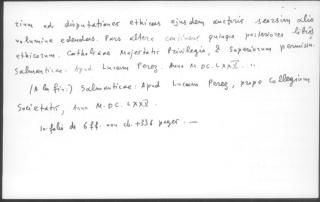 tium ad disputationes ethicas ejusdem auctoris seorsim alio
volumine edendas. Pars altera continens quinque posteriores libros
ethicorum. Catholicae Majestatis Privilegio, & Superiorum permissu.
Salmanticae: Apud Lucam Perez. Anno M.DC.LXXV. ..
(A la fin:) Salmanticae: Apud Lucam Perez, prope Collegium
Societatis, Anno M.DC.LXXV.
In folio de 6 ff. non ch. +336 pages. —